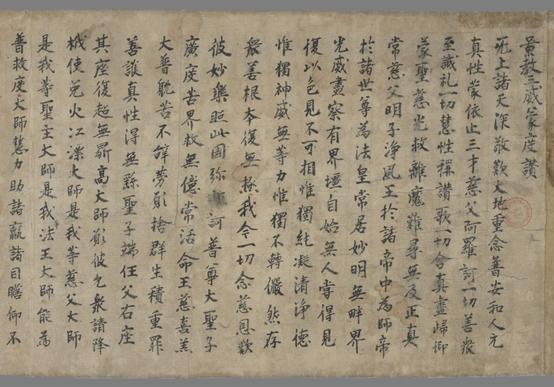 景教三威蒙度讚
无上諸天深敬歎大地重念普安和人元
真性蒙依止三才慈父阿羅訶一切善衆
至誠礼一切慧性稱讚歌一切含真盡歸仰
蒙聖慈光救離魔難尋無及正真
常慈父明子淨風王於諸帝中為師帝
於諸世尊為法皇常居妙明無畔界
光威盡察有界壃自始無人嘗得見
復以色見不可相惟獨純凝清淨德
惟獨神威無等力惟獨不轉儼然存
衆善根本復無極我今一切念慈恩歎
彼妙樂照此國弥訶普尊大聖子
廣度苦界救無億常活命王慈喜羔
大普耽苦不辞勞願捨群生積重罪
善護真性得無繇聖子端任父右座
其座復超無鼎高大師願彼乞衆請降
栰使免火江漂大師是我等慈父大師
是我等聖主大師是我法王大師能為
普救度大師慧力助諸羸諸目瞻仰不